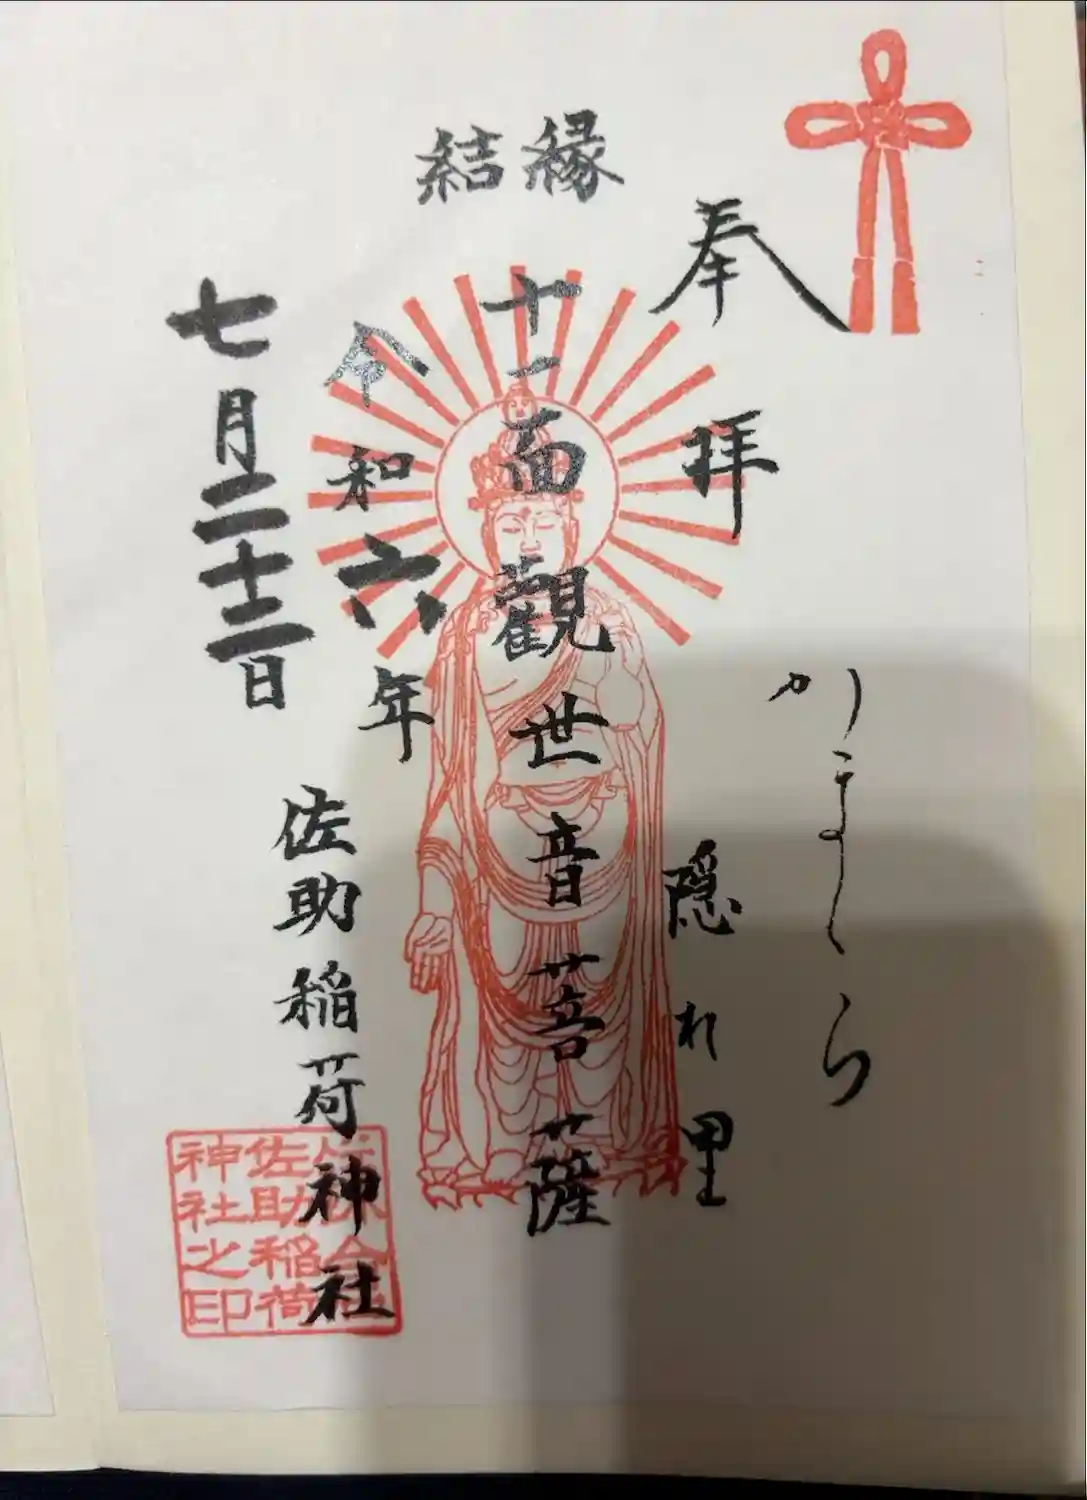 奉拝
かまくら
隠れ里
結縁
十一面観世音菩薩
令和六年
七月二十二日
佐助稲荷神社
佐助稲荷
神社之印